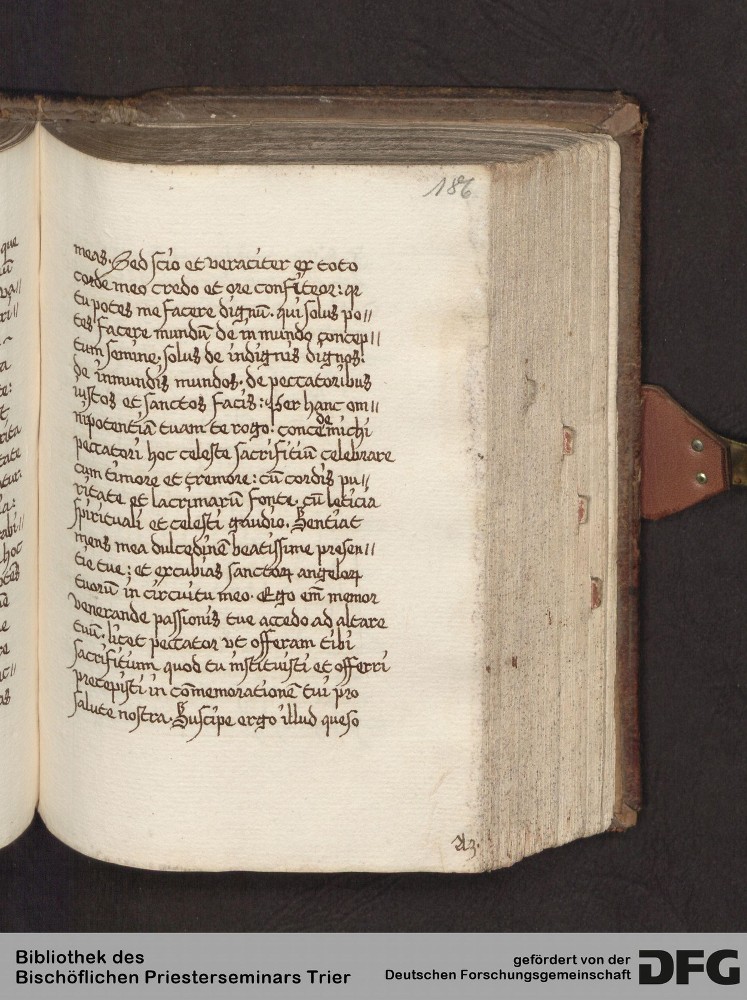 186
meas. Sed scio et veraciter ex toto
corde meo credo et ore confiteor: qr
tu potes me facere dignū. qui solus po//
tes facere mundū de in mundo concep//
tum semine. solus de indignis dignos:
de inmundis mundos. de peccatoribus
iustos et sanctos facis: Per hanc om//
nipotentiā tuam te rogo: concede michi
peccatori hoc celeste sacrifitiū celebrare
cum timore et tremore: cū cordis pu//
ritate et lacrimarū fonte. cū leticia
spirituali et celesti gaudio. Sentiat
mens mea dulcedinē beatissime presen//
tie tue: et excubias sanctoꝝ angeloꝝ
tuorū in circuitu meo. Ego em̄ memor
venerande passionis tue accedo ad altare
tuū. licet peccator vt offeram tibi
sacrifitium quod tu instituisti et offerri
precepisti in cōmemorationē tui pro
salute nostra. Suscipe ergo illud queso
Bibliothek des
Bischöflichen Priesterseminars Trier
gefördert von der
Deutschen Forschungsgemeinschaft
DFG